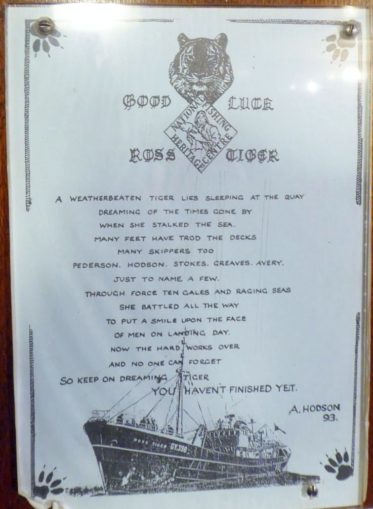 GOOD LUCK
NATIONAL FISHING
HERITAGE CENTRE
ROSS TIGER
A WEATHERBEATEN TIGER LIES SLEEPING AT THE QUAY
DREAMING OF THE TIMES GONE BY
WHEN SHE STALKED THE SEA.
MANY FEET HAVE TROD THE DECKS
MANY SKIPPERS TOO
PEDERSON. HODSON. STOKES. GREAVES. AVERY.
JUST TO NAME A FEW.
THROUGH FORCE TEN GALES AND RAGING SEAS
SHE BATTLED ALL THE WAY
TO PUT A SMILE UPON THE FACE
OF MEN ON LANDING DAY.
NOW THE HARD WORKS OVER
AND NO ONE CAN FORGET
SO KEEP ON DREAMING TIGER
YOU HAVEN'T FINISHED YET.
A. HODSON
93.
ROSS TIGER GY398